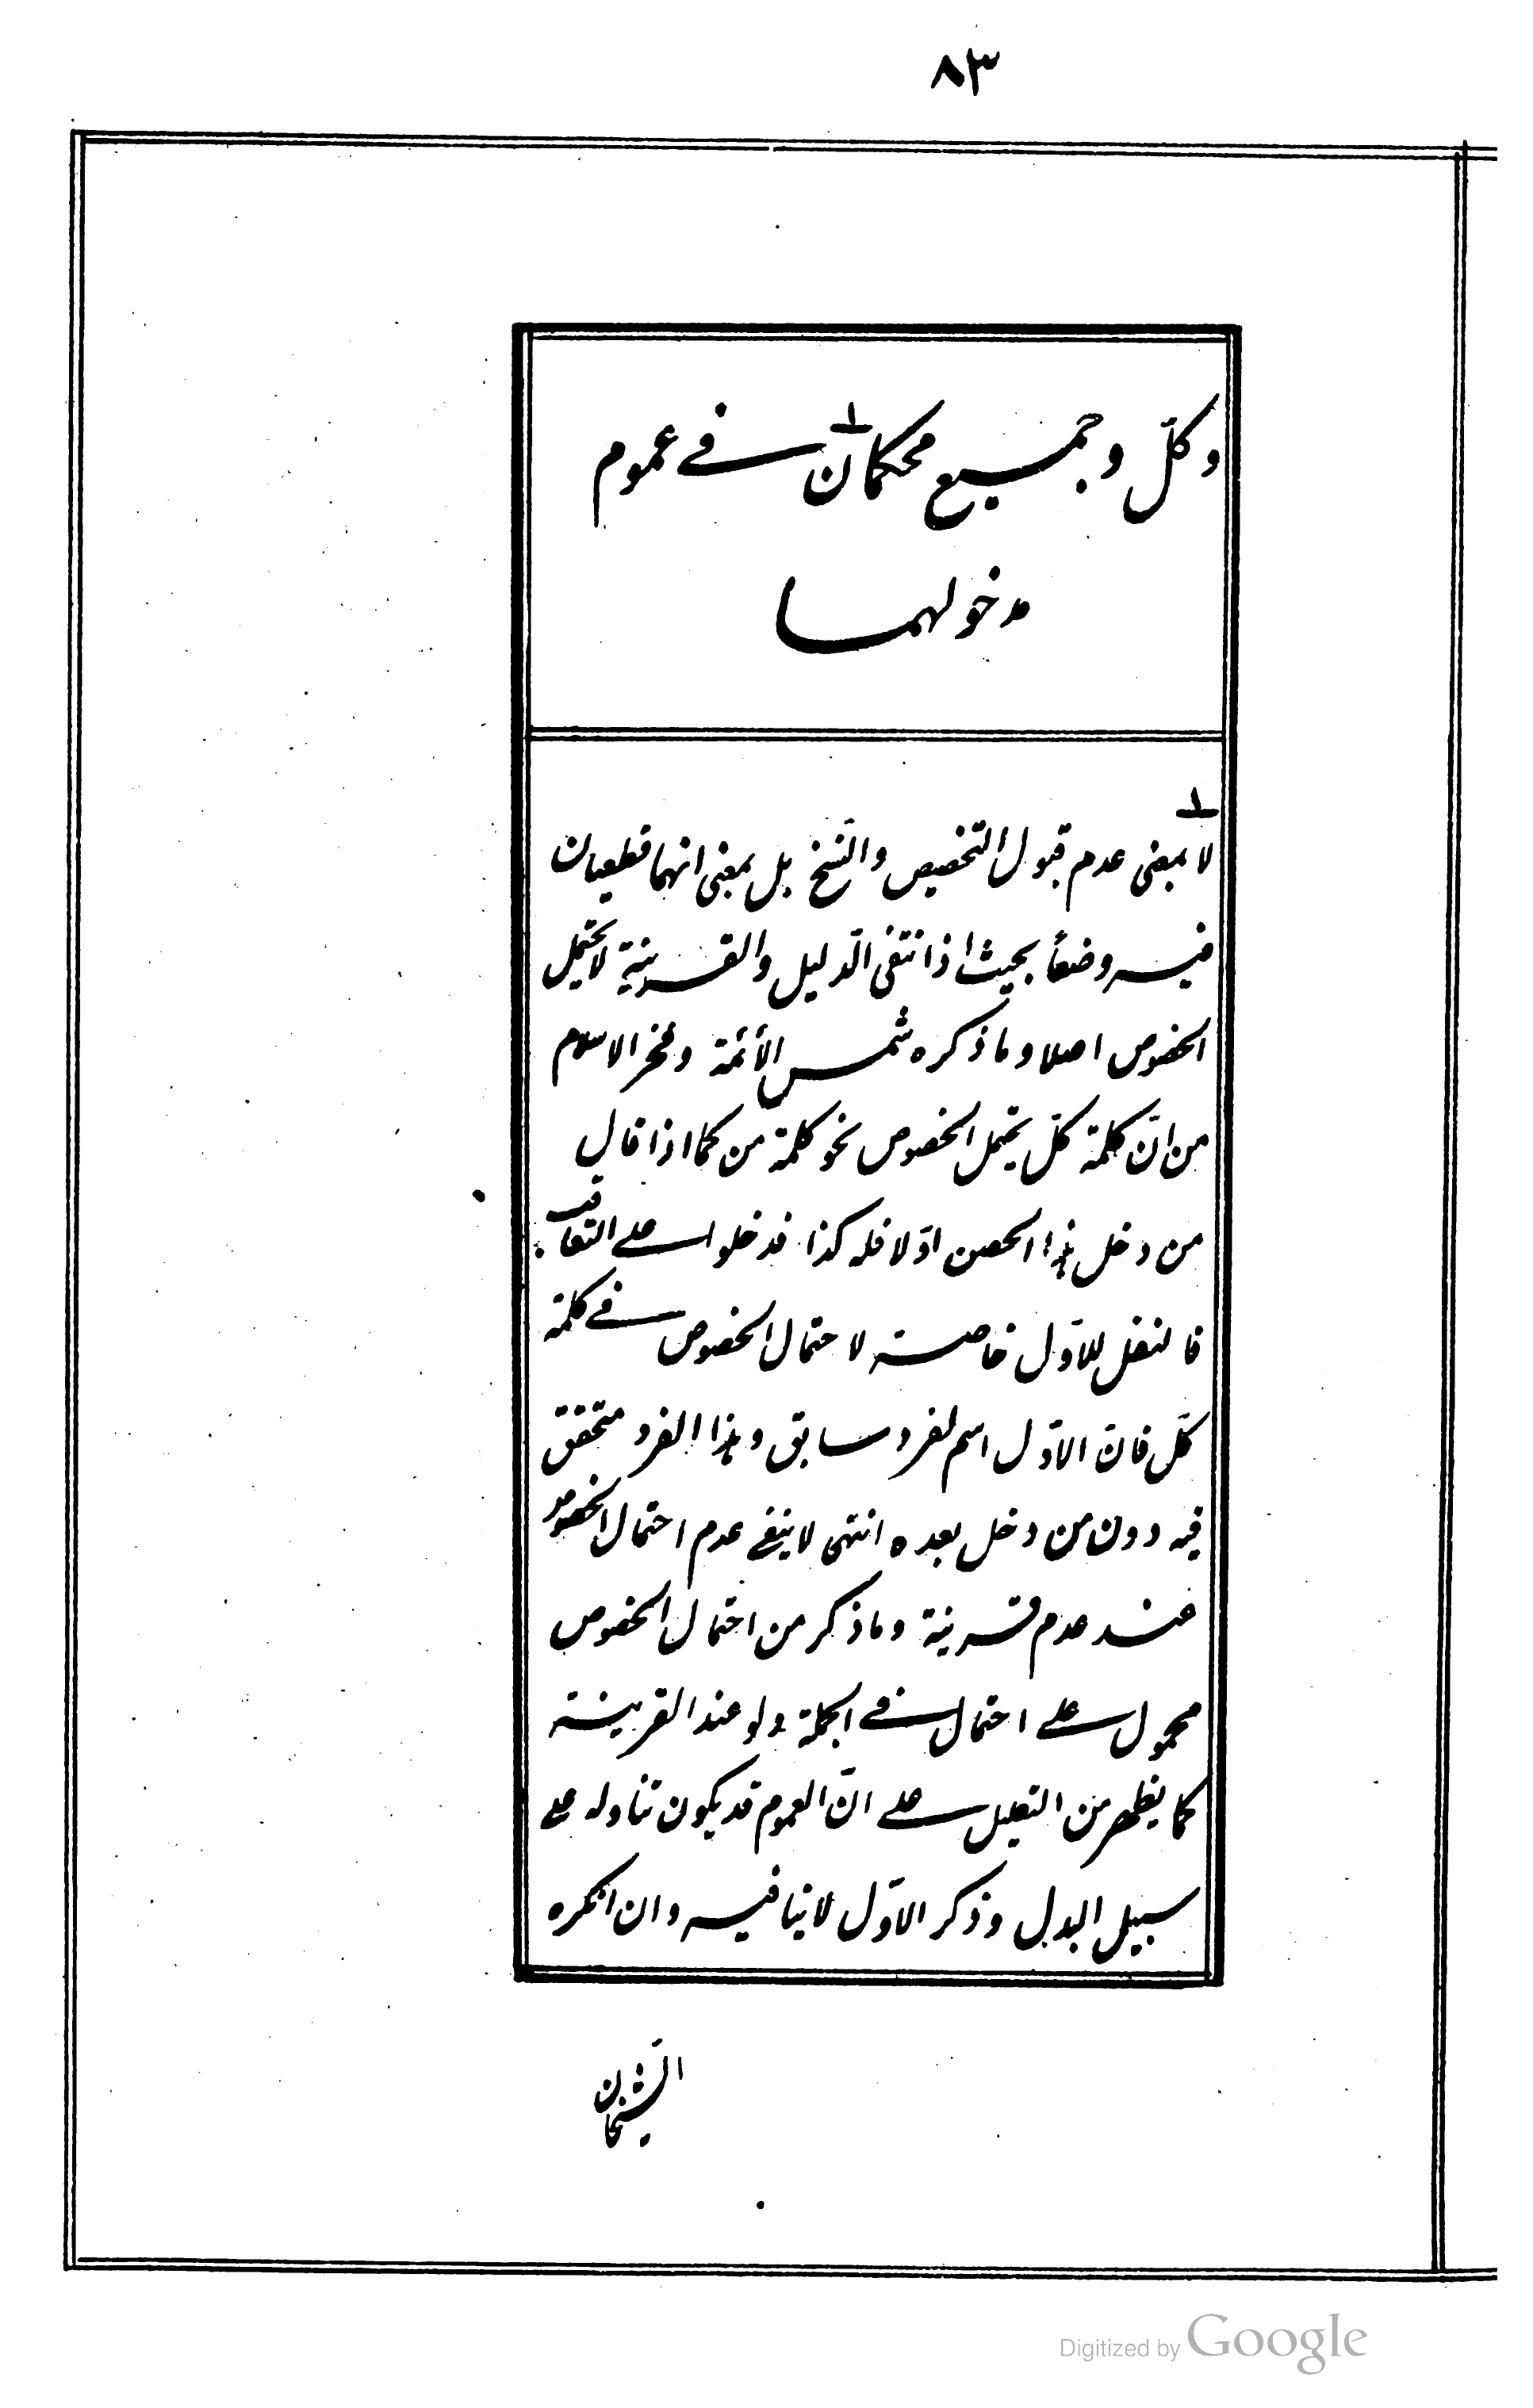 ٨٣
وكلّ وجميع محكمان ١ فے عموم
مدخولهما
١
لا بمعنى عدم قبول التخصيص والنّسخ بل بمعنى انهما قطعيان
فيه وضعاً بحيث اذا نتفى الدّليل والقرينية لا يحتمل
الخصوص اصلا وما ذكره شمس الأئمة وفخر الاسلام
من انّ كلمة كلّ يحتمل الخصوص نحو كلمة من كما اذا قال
من دخل هذا الحصن اوّلا فله كذا فدخلوا علے التعاقب
فالنفل للاوّل خاصة لاحتمال الخصوص فے كلمة
كلّ فان الاوّل اسم لفرد سابق وهذا الفرد متحقق
فيه دون من دخل بعده انتهى لا ينفے عدم احتمال الخصوص
عند عدم قرينة وما ذكر من احتمال الخصوص
محمول علے احتمال فے الجملة ولو عند القرينة
كما يظهر من التعليل علے انّ العموم قد يكون تناوله علے
سبيل البدل وذكر الاوّل لا ينافيه وان انكره
الشّيخان
Digitized by Google